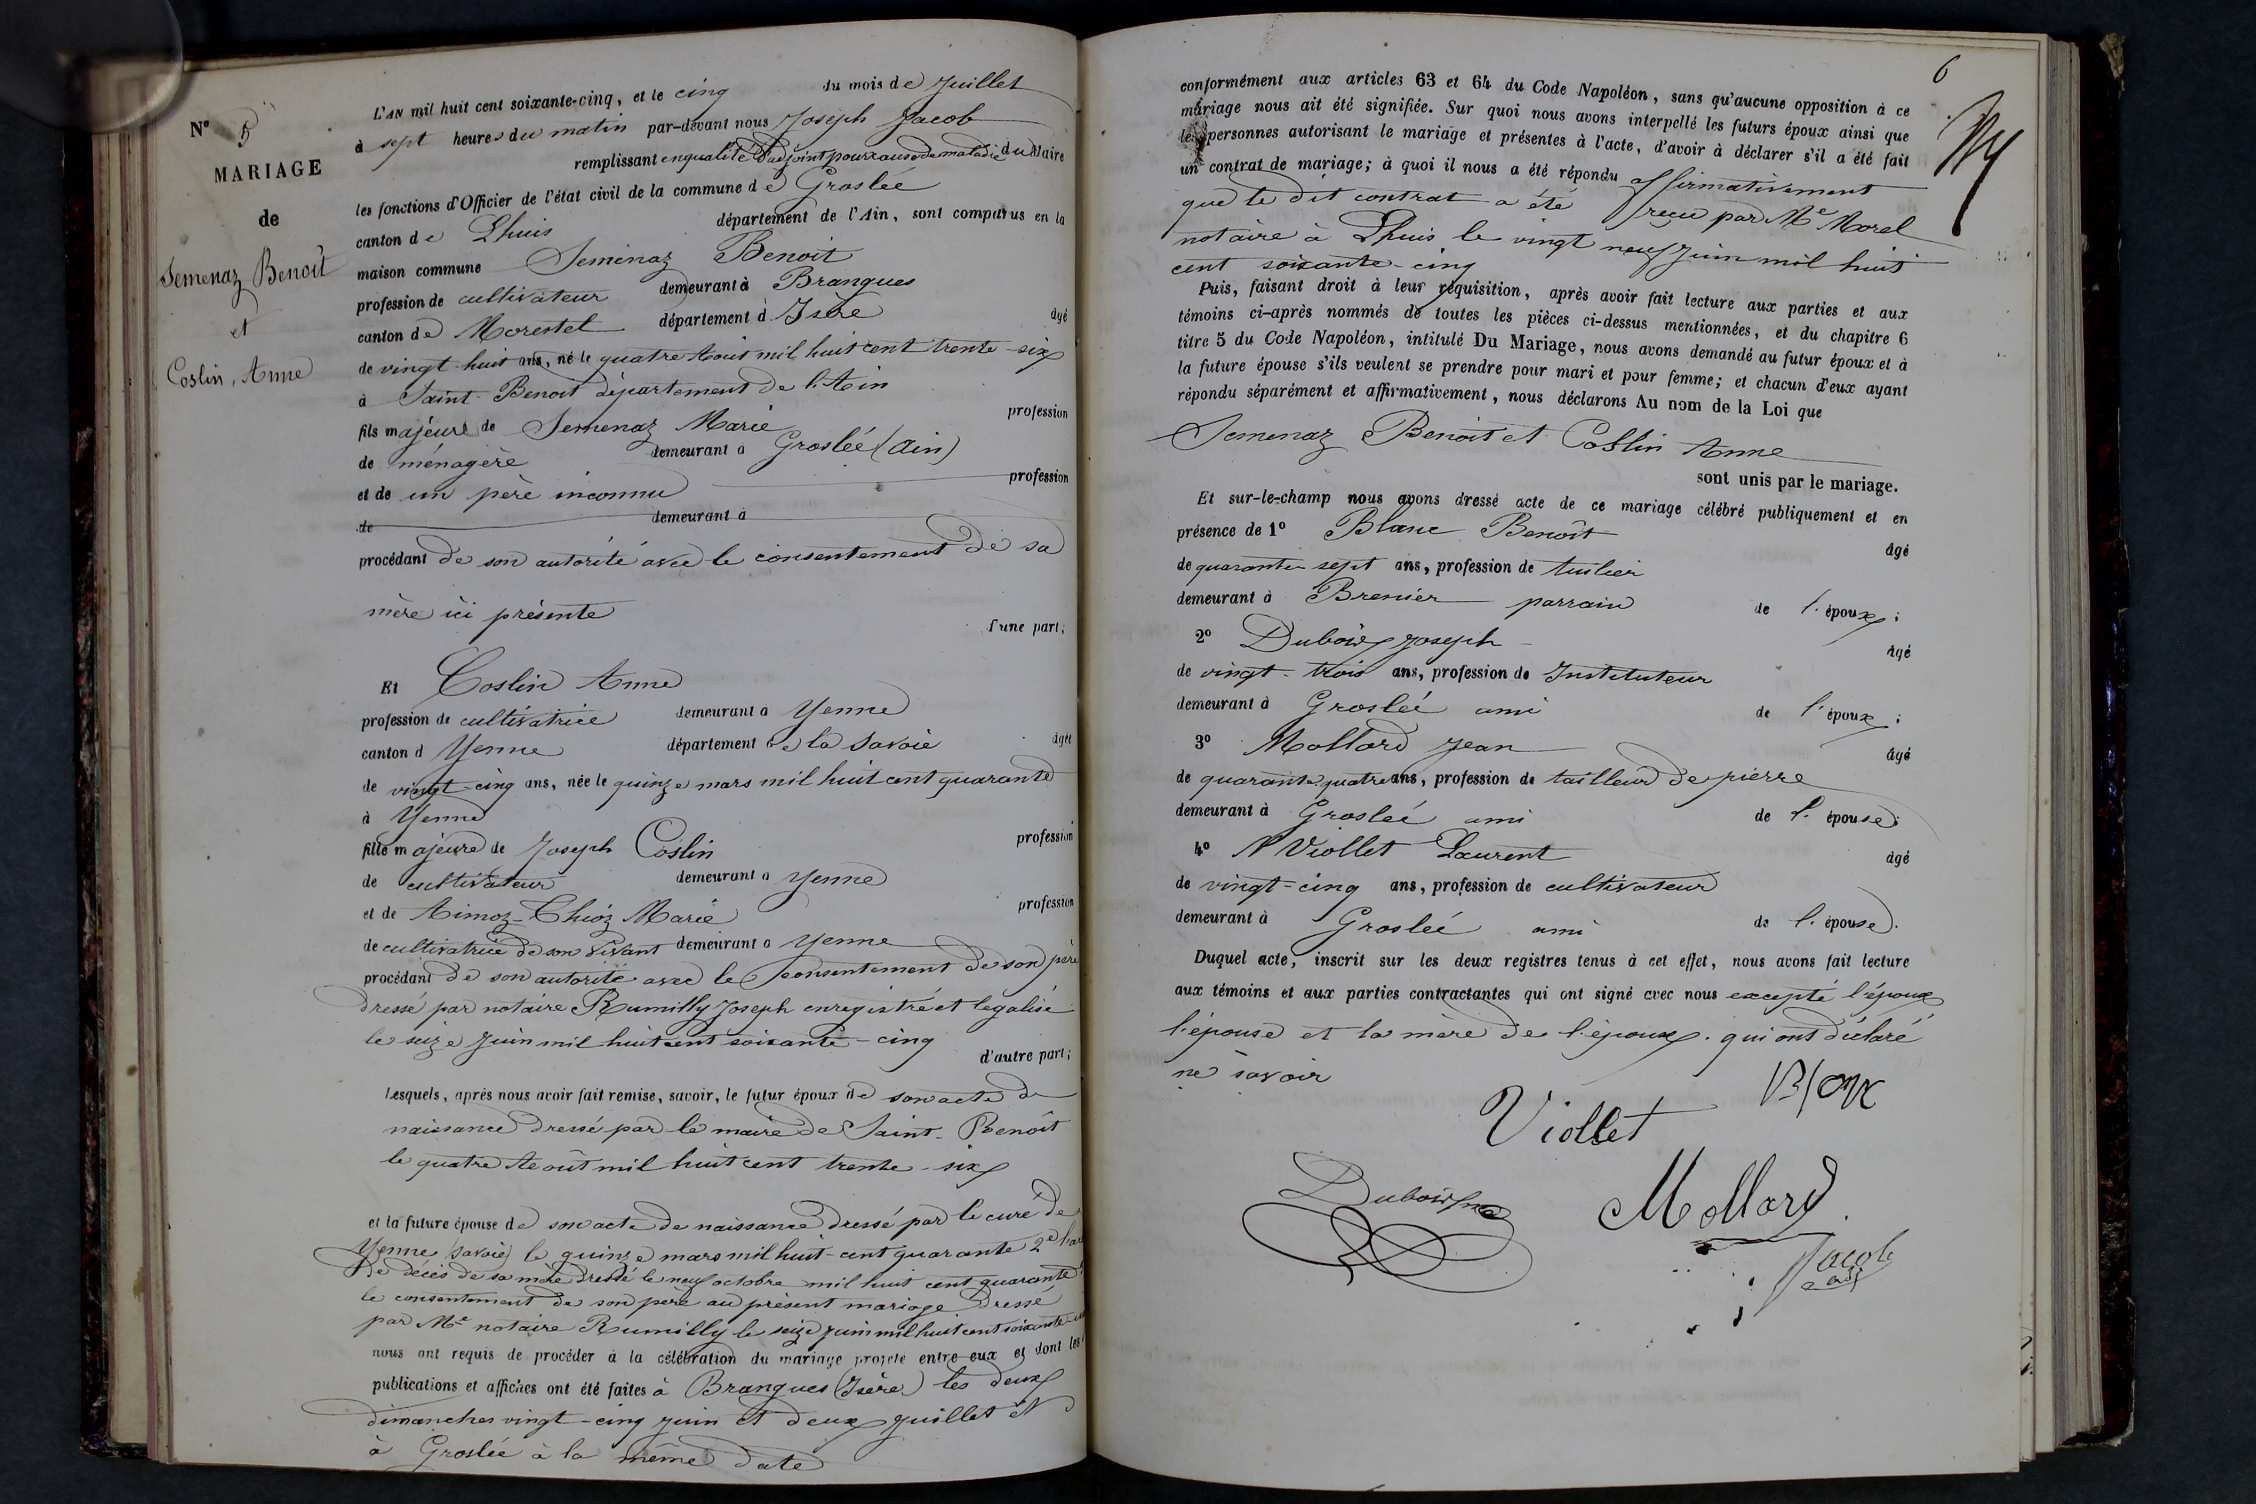 N° 5
MARIAGE
de
Semenaz Benoît
et
Coslin, Anne
L'AN mil huit cent soixante-cinq, et le cinq du mois de Juillet
à sept heures du matin par-devant nous Joseph Jacob
remplissant en qualité d'adjoint pour cause de maladie du Maire
les fonctions d'Officier de l'état civil de la commune de Groslée
canton de Lhuis département de l'Ain, sont comparus en la
maison commune Semenaz Benoit
profession de cultivateur demeurant à Brangues
canton de Morestel département d Isère âgé
de vingt-huit ans, né le quatre Août mil huit cent trente-six
à Saint-Benoit département de l'Ain
fils majeur de Semenaz Marie profession
de ménagère demeurant à Groslée (Ain)
et de un père inconnu profession
de demeurant à
procédant de son autorité avec le consentement de sa
mère ici présente
d'une part;
Et Coslin Anne
profession de cultivatrice demeurant à Yenne
canton d Yenne département de la Savoie âgée
de vingt-cinq ans, née le quinze mars mil huit cent quarante
à Yenne
fille majeure de Joseph Coslin profession
de cultivateur demeurant à Yenne
et de Aimoz-Chioz Marie profession
de cultivatrice de son vivant demeurant à Yenne
procédant de son autorité avec le consentement de son père
dressé par notaire Rumilly Joseph enregistré et legalisé
le seize Juin mil huit cent soixante-cinq
d'autre part;
Lesquels, après nous avoir fait remise, savoir, le futur époux de son acte de
naissance dressé par le maire de Saint-Benoît
le quatre Août mil huit cent trente-six
et la future épouse de son acte de naissance dressé par le curé de
Yenne (Savoie) le quinze mars mil huit-cent quarante 2e
de décès de sa mère dressé le neuf octobre mil huit cent quarante
le consentement de son père au présent mariage dressé
par Me notaire Rumilly le seize juin mil huit cent soixante
nous ont requis de procéder à la célébration du mariage projeté entre eux et dont les
publications et affiches ont été faites à Brangues (Isère) les deux
dimanches vingt-cinq juin et deux juillet et
à Groslée à la même date
6
conformément aux articles 63 et 64 du Code Napoléon, sans qu'aucune opposition à ce
mariage nous ait été signifiée. Sur quoi nous avons interpellé les futurs époux ainsi que
les personnes autorisant le mariage et présentes à l'acte, d'avoir à déclarer s'il a été fait
un contrat de mariage; à quoi il nous a été répondu affirmativement
que le dit contrat a été reçu par Me Morel
notaire à Lhuis le vingt neuf Juin mil huit
cent soixante-cinq
Puis, faisant droit à leur réquisition, après avoir fait lecture aux parties et aux
témoins ci-après nommés de toutes les pièces ci-dessus mentionnées, et du chapitre 6
titre 5 du Code Napoléon, intitulé Du Mariage, nous avons demandé au futur époux et à
la future épouse s'ils veulent se prendre pour mari et pour femme; et chacun d'eux ayant
répondu séparément et affirmativement, nous déclarons Au nom de la Loi que
Semenaz Benoit et Coslin Anne
sont unis par le mariage.
Et sur-le-champ nous avons dressé acte de ce mariage célébré publiquement et en
présence de 1° Blanc Benoît âgé
de quarante sept ans, profession de tuilier
demeurant à Brenier parrain de l'époux;
2° Duboix Joseph âgé
de vingt-trois ans, profession de Instituteur
demeurant à Groslée ami de l'époux;
3° Mollard Jean âgé
de quarante-quatre ans, profession de tailleur de pierre
demeurant à Groslée ami de l'épouse;
4° Viollet Laurent âgé
de vingt-cinq ans, profession de cultivateur
demeurant à Groslée ami de l'épouse.
Duquel acte, inscrit sur les deux registres tenus à cet effet, nous avons fait lecture
aux témoins et aux parties contractantes qui ont signé avec nous excepté l'époux
l'épouse et la mère de l'époux. qui ont déclaré
ne savoir
Viollet Blanc
Duboix Mollard
Jacob
adj